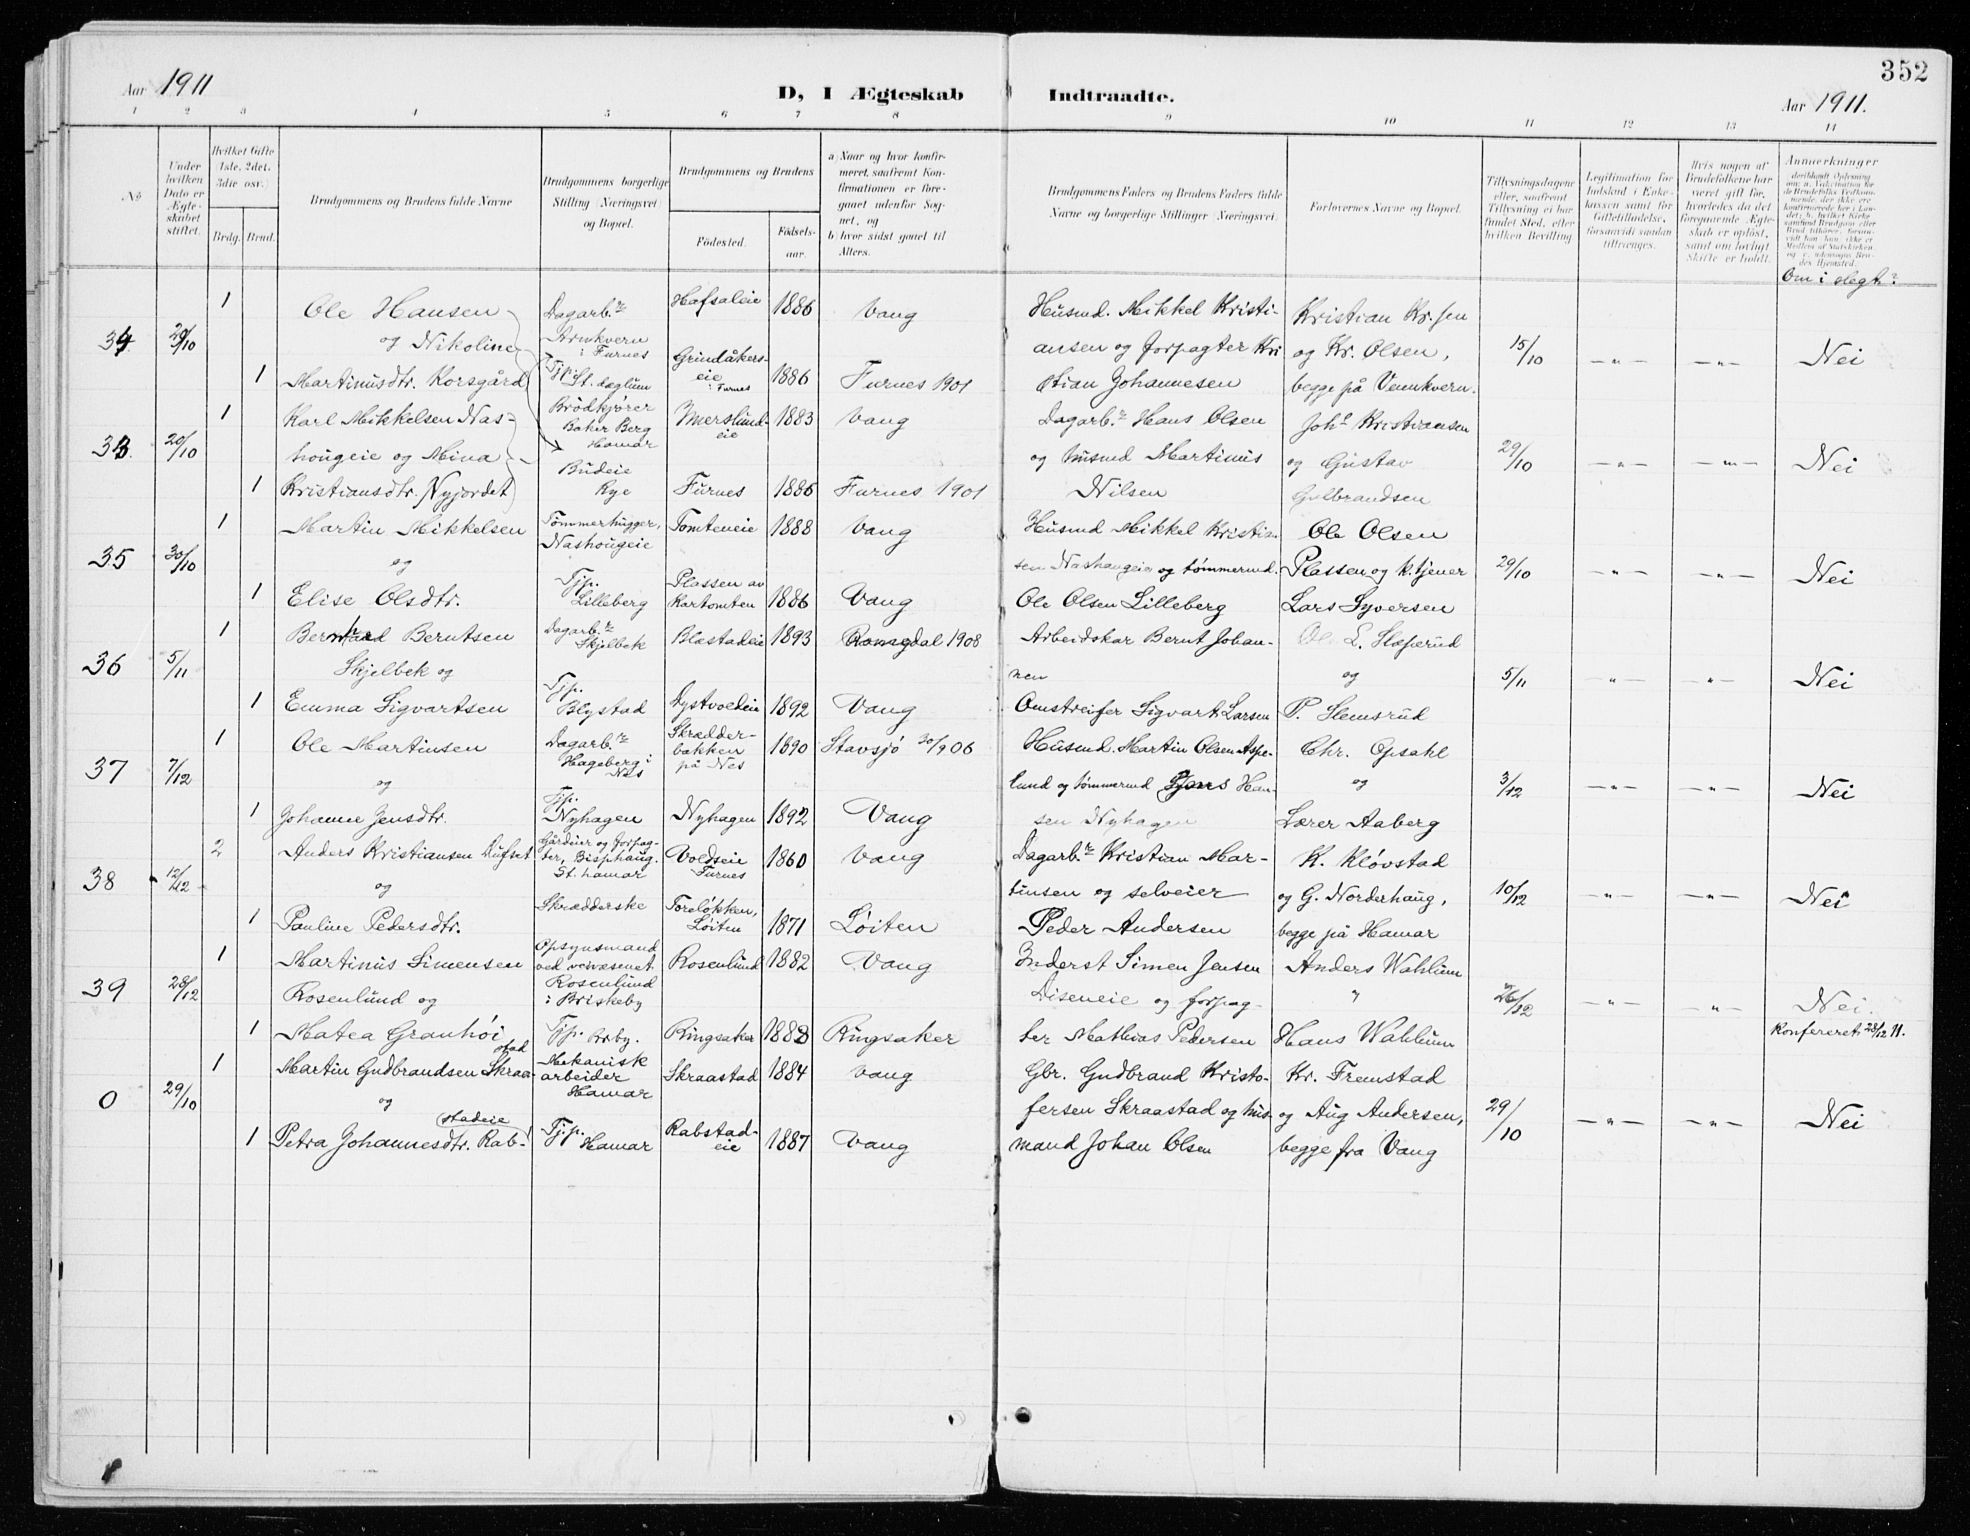 352
Aar 1911
D, I Ægteskab Indtraadte.
Aar 1911.
1 2 3 4 5 6 7 8 9 10 11 12 13 14
No
Under hvilken Dato er Ægteskabet stiftet.
Hvilket Gifte 1ste, 2det, 3die osv.)
Brdg. Brud.
Brudgommens og Brudens fulde Navne
Brudgommens borgerlige Stilling (Næringsvei) og Bopæl.
Brudgommens og Brudens
Fødested.
Fødsels-aar.
a) Naar og hvor konfirmeret, saafremt Konfirmationen er foregaaet udenfor Sognet, og
b) hvor sidst gaaet til Alters.
Brudgommens Faders og Brudens Faders fulde Navne og borgerlige Stillinger (Næringsvei).
Forlovernes Navne og Bopæl.
Tillysningsdagene eller, saafremt Tillysning ei har fundet Sted, efter hvilken Bevilling.
Legitimation for Indskud i Enkekassen samt for Giftetilladelse, forsaavidt saadan tiltrænges.
Hvis nogen af Brudefolkene har været gift før, hvorledes da det foregaaende Ægteskab er opløst, samt om lovligt Skifte er holdt.
Anmærkninger
Om i slegt?
34 20/10
1 Ole Hansen og Nikoline Dagarb.r Arnkvern i Furnes Hafsaleie 1886 Vang
1 Martinusdtr. Korsgård Tjp. St. Læglum Grindåkerseie i Furnes 1886 Furnes 1901
Husmd. Mikkel Kristiansen og forpagter Kristian Johannesen
Kristian Kr.sen og Kr. Olsen, begge på Vennkvern.
15/10 —„— —„— Nei
33. 20/10
1 Karl Mikkelsen Nashougeie og Mina Brødkjører Baker Berg Hamar Ymerslundeie 1883 Vang
1 Kristiansdtr. Nyjordet Budeie Rye Furnes 1886 Furnes 1901
Dagarb.r Hans Olsen og husmd Martinus Nilsen
Joh.s Kristiansen og Gustav Gulbrandsen
29/10 —„— —„— Nei
35 30/10
1 Martin Mikkelsen Tømmerhugger, Nashougeie Tomteneie 1888 Vang
og
1 Elise Olsdtr. Tjp. Lilleberg Plassen av Kartomten 1886 Vang
Husmd Mikkel Kristiansen Nashaugeie og tømmermd. Ole Olsen Lilleberg
Ole Olsen Plassen og k.tjener Lars Syversen
29/10 —„— —„— Nei
36 5/11
1 Bernhard Berntsen Skjelbek og Dagarb.r Skjelbek Blæstadeie 1893 Romsdal 1908
1 Emma Sigvartsen Tjp. Blystad Dystvoldeie 1892 Vang
Arbeidskar Bernt Johannen Omstreifer Sigvart Larsen
Ole L. Slæperud og P. Slemsrud
5/11 —„— —„— Nei
37 7/12
1 Ole Martinsen Dagarb.r Hageberg i Næs Skrædderbakken på Nes 1890 Stavsjø 30/9 06
og
1 Johanne Jensdtr. Tjp. Nyhagen Nyhagen 1892 Vang
Husmd. Martin Olsen Aspelund og tømmermd Jens Hansen Nyhagen
Chr. Opsahl og Lærer Aaberg
3/12 —„— —„— Nei
38 12/12
2 Anders Kristiansen Dufset Gårdeier og forpagter, Bisphaug St. hamar Voldseie Furnes 1860 Vang
og
1 Pauline Pedersdtr. Skrædderske Toreløkken, Løiten 1871 Løiten
Dagarb.r Kristian Martinsen og selveier Peder Andersen
K. Kløvstad og G. Norderhaug, begge på Hamar
10/12 —„— —„— Nei
39 28/12
1 Martinus Simensen Rosenlund og Opsynsmand ved veivæsenet Rosenlund i Briskeby Rosenlund 1882 Vang
1 Matea Granhøi Tjp. Brby. Ringsaker 1883 Ringsaker
Inderst Simen Jensen Diseneie og forpagter Mathias Pedersen
Anders Wahlum „ Hans Wahlum
26/12 —„— —„— Nei.
Konfereret 28/12 11.
0 29/10
1 Martin Gudbrandsen Skraastad Mekanisk arbeider Hamar Skraastad 1884 Vang
og
1 Petra Johannesdtr. Rabstadeie Tjp. Hamar Rabstadeie 1887 Vang
Gbr. Gudbrand Kristofersen Skraastad og husmand Johan Olsen
Kr. Fremstad og Aug Andersen, begge fra Vang
29/10 —„— —„— Nei